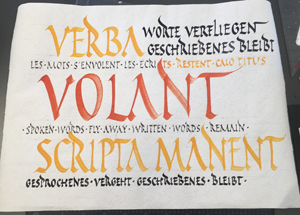 VERBA
WORTE VERFLIEGEN
GESCHRIEBENES BLEIBT
LES·MOTS·S'ENVOLENT·LES·ECRITS·RESTENT·CAIO TITUS
VOLANT
·SPOKEN·WORDS·FLY·AWAY·WRITTEN·WORDS·REMAIN·
SCRIPTA MANENT
GESPROCHENES·VERGEHT·GESCHRIEBENES·BLEIBT·